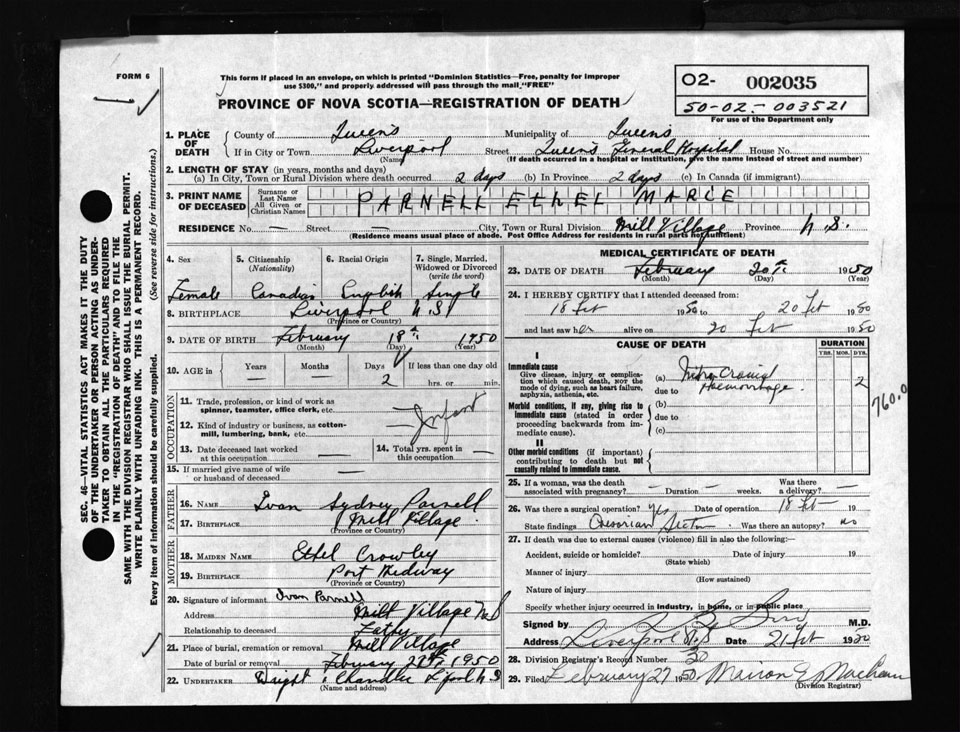 FORM 6
This form if placed in an envelope, on which is printed "Dominion Statistics—Free, penalty for improper
use $300," and properly addressed will pass through the mail "FREE"
PROVINCE OF NOVA SCOTIA—REGISTRATION OF DEATH
02- 002035
50-02-003521
For use of the Department only
SEC. 46—VITAL STATISTICS ACT MAKES IT THE DUTY
OF THE UNDERTAKER OR PERSON ACTING AS UNDER-
TAKER TO OBTAIN ALL THE PARTICULARS REQUIRED
IN THE "REGISTRATION OF DEATH" AND TO FILE THE
SAME WITH THE DIVISION REGISTRAR WHO SHALL ISSUE THE BURIAL PERMIT.
WRITE PLAINLY WITH UNFADING INK. THIS IS A PERMANENT RECORD.
Every item of information should be carefully supplied. (See reverse side for instructions.)
1. PLACE OF DEATH County of Queen's Municipality of Queen's
If in City or Town Liverpool Street Queen's General Hospital House No.
(Name) (If death occurred in a hospital or institution, give the name instead of street and number)
2. LENGTH OF STAY (in years, months and days)
(a) In City, Town or Rural Division where death occurred 2 days (b) In Province 2 days (c) In Canada (if immigrant)
3. PRINT NAME OF DECEASED Surname or Last Name All Given or Christian Names PARNELL ETHEL MARIE
RESIDENCE No. — Street — City, Town or Rural Division Mill Village Province N.S.
(Residence means usual place of abode. Post Office Address for residents in rural parts not sufficient)
4. Sex 5. Citizenship (Nationality) 6. Racial Origin 7. Single, Married, Widowed or Divorced (write the word)
Female Canadian English Single
8. BIRTHPLACE Liverpool N.S.
(Province or Country)
9. DATE OF BIRTH February 18th 1950
(Month) (Day) (Year)
10. AGE in Years — Months — Days 2 If less than one day old hrs. or min.
OCCUPATION
11. Trade, profession, or kind of work as spinner, teamster, office clerk, etc. Infant
12. Kind of industry or business, as cotton-mill, lumbering, bank, etc.
13. Date deceased last worked at this occupation — 14. Total yrs. spent in this occupation —
15. If married give name of wife or husband of deceased —
FATHER
16. NAME Ivan Sydney Parnell
17. BIRTHPLACE Mill Village
(Province or Country)
MOTHER
18. MAIDEN NAME Ethel Crowley
19. BIRTHPLACE Port Medway
(Province or Country)
20. Signature of informant Ivan Parnell
Address Mill Village N.S
Relationship to deceased Father
21. Place of burial, cremation or removal Mill Village
Date of burial or removal February 1950
22. UNDERTAKER Chandler L'pool N.S
(Name and address)
MEDICAL CERTIFICATE OF DEATH
23. DATE OF DEATH February 20th 1950
(Month) (Day) (Year)
24. I HEREBY CERTIFY that I attended deceased from:
18 Feb 1950 to 20 Feb 1950
and last saw her alive on 20 Feb 1950
CAUSE OF DEATH DURATION
YRS. MOS. DYS.
I
Immediate cause
Give disease, injury or complication which caused death, NOT the mode of dying, such as heart failure, asphyxia, asthenia, etc.
(a) Intra Cranial Haemorrhage 2
due to
760.0
Morbid conditions, if any, giving rise to immediate cause (stated in order proceeding backwards from immediate cause).
(b)
due to
(c)
II
Other morbid conditions (if important) contributing to death but not causally related to immediate cause.
25. If a woman, was the death associated with pregnancy? — Duration — weeks. Was there a delivery? —
26. Was there a surgical operation? Yes Date of operation 18 Feb 19
State findings Section Was there an autopsy? no
27. If death was due to external causes (violence) fill in also the following:
Accident, suicide or homicide? Date of injury 19
(State which)
Manner of injury
(How sustained)
Nature of injury
Specify whether injury occurred in industry, in home, or in public place
Signed by M.D.
Address Liverpool N.S Date 21 Feb 1950
28. Division Registrar's Record Number 30
29. Filed February 27 1950
(Division Registrar)